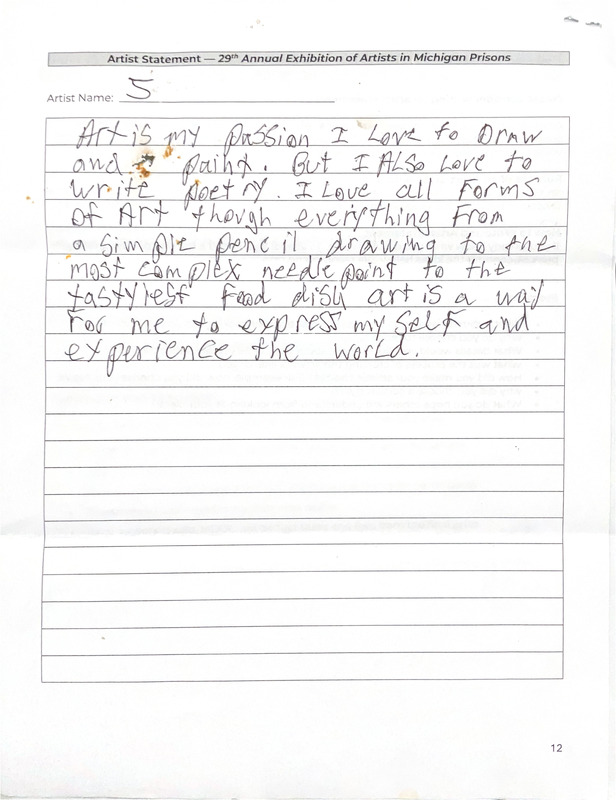 Artist Statement — 29th Annual Exhibition of Artists in Michigan Prisons
Artist Name: 5
Art is my passion I Love to Draw
and paint. But I ALSo Love to
write poetry. I Love all Forms
of Art though everything From
a Simple pencil drawing to the
most complex needle point to the
tastyiest Food dish art is a way
For me to express my Self and
experience the world.
12